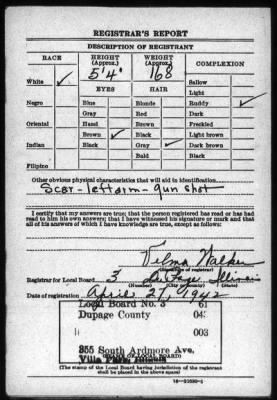 REGISTRAR'S REPORT
DESCRIPTION OF REGISTRANT
RACE HEIGHT (Approx.) WEIGHT (Approx.) COMPLEXION
5'4" 168
White ✓ Sallow
EYES HAIR Light
Negro Blue Blonde Ruddy ✓
Gray Red Dark
Oriental Hazel Brown Freckled
Brown ✓ Black Light brown
Indian Black Gray ✓ Dark brown
Bald Black
Filipino
Other obvious physical characteristics that will aid in identification
Scar - left arm - gun shot
I certify that my answers are true; that the person registered has read or has had
read to him his own answers; that I have witnessed his signature or mark and that
all of his answers of which I have knowledge are true, except as follows:
Vilma Walker
(Signature of registrar)
Registrar for Local Board 3 Du Page Illinois
(Number) (City or county) (State)
Date of registration April 27, 1942
Local Board No. 3 61
Dupage County 043
003
355 South Ardmore Ave.
Villa Park, Illinois
(STAMP OF LOCAL BOARD)
(The stamp of the Local Board having jurisdiction of the registrant
shall be placed in the above space)